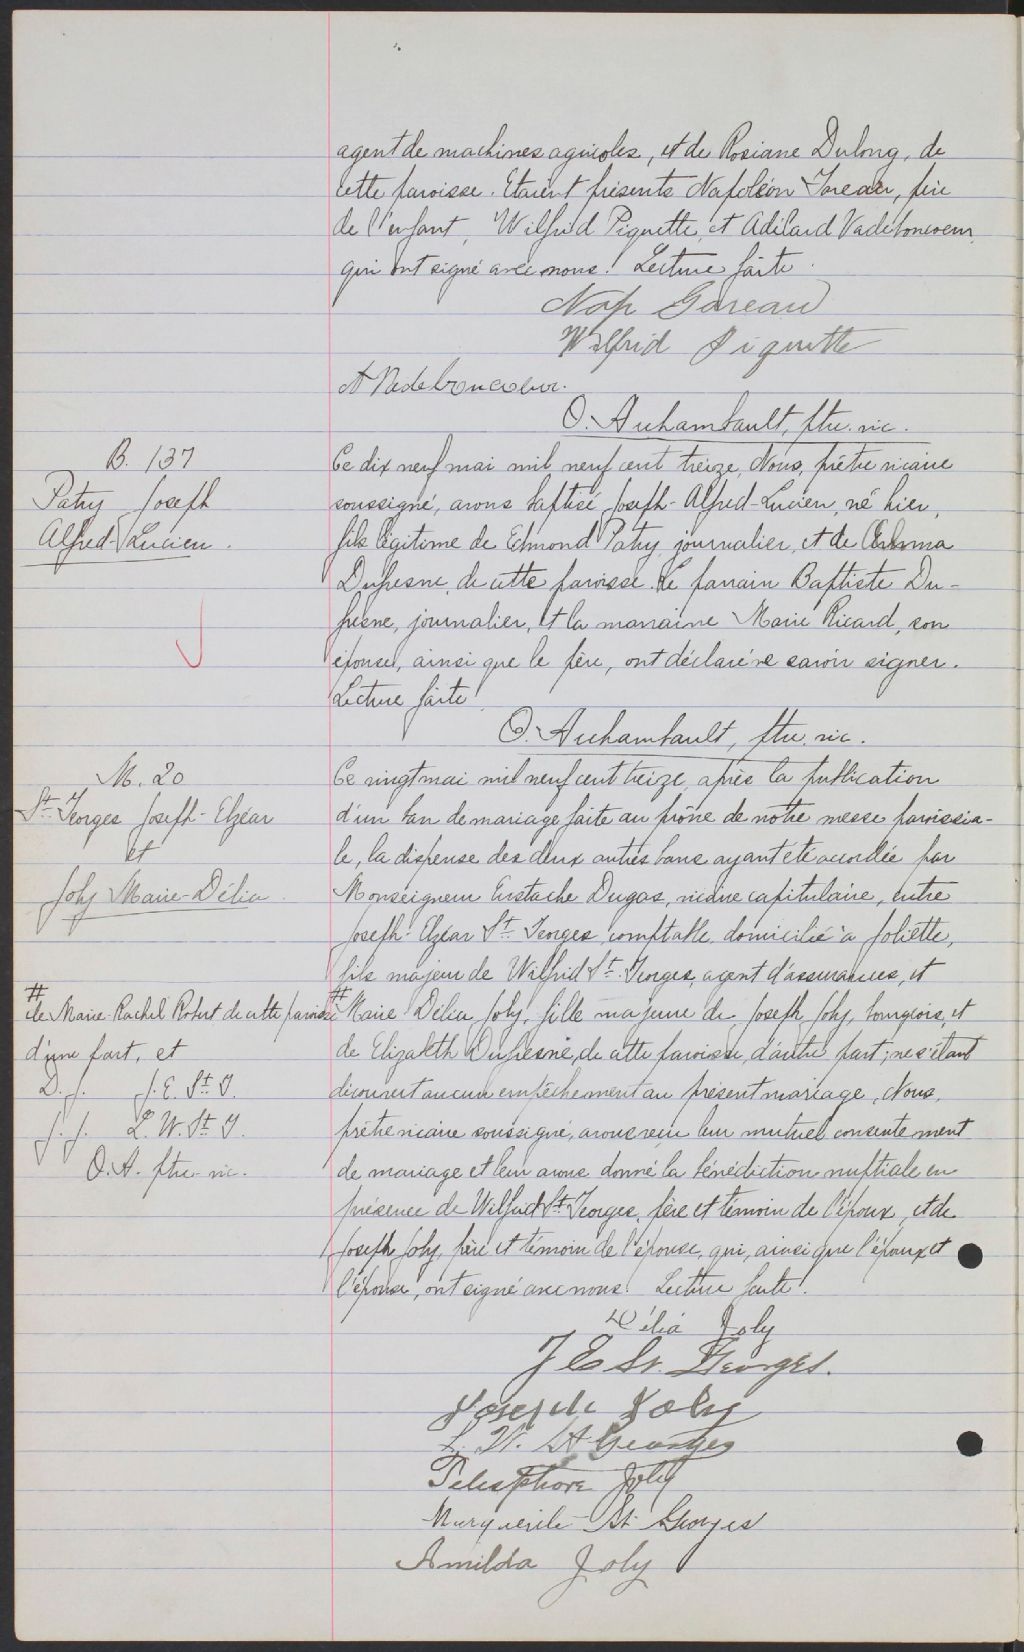 agent de machines agricoles, et de Rosiane Dulong, de
cette paroisse. Etaient présents Napoléon Gareau, père
de l'enfant, Wilfrid Piquette, et Adélard Vadeboncoeur,
qui ont signé avec nous. Lecture faite.
Nap Gareau
Wilfrid Piquette
A Vadeboncoeur.
O. Archambault, ptre. vic.
B. 137
Patry Joseph
Alfred-Lucien.
Ce dix neuf mai mil neuf cent treize, Nous, prêtre vicaire
soussigné, avons baptisé Joseph-Alfred-Lucien, né hier,
fils légitime de Edmond Patry, journalier, et de
Dufresne, de cette paroisse. Le parrain Baptiste Du-
fresne, journalier, et la marraine Marie Ricard, son
épouse, ainsi que le père, ont déclaré ne savoir signer.
Lecture faite.
O. Archambault, ptre. vic.
M. 20
St-Georges Joseph-Elzéar
et
Joly Marie-Délia.
Ce vingt mai mil neuf cent treize, après la publication
d'un ban de mariage faite au prône de notre messe paroissia-
le, la dispense des deux autres bans ayant été accordée par
Monseigneur Eustache Dugas, vicaire capitulaire, entre
Joseph-Elzéar St-Georges, comptable, domicilié à Joliette,
fils majeur de Wilfrid St-Georges, agent d'assurances, et
# Marie Délia Joly, fille majeure de Joseph Joly, bourgeois, et
de Elizabeth Dufresne, de cette paroisse, d'autre part; ne s'étant
découvert aucun empêchement au présent mariage, Nous,
prêtre vicaire soussigné, avons reçu leur mutuel consentement
de mariage et leur avons donné la bénédiction nuptiale en
présence de Wilfrid St-Georges, père et témoin de l'époux, et de
Joseph Joly, père et témoin de l'épouse, qui, ainsi que l'époux et
l'épouse, ont signé avec nous. Lecture faite.
#
de Marie-Rachel Robert de cette paroisse
d'une part, et
D. J. J. E. St. G.
J. J. L. W. St. G.
O. A. ptre. vic.
Délia Joly
J E St. Georges.
Joseph Joly
L. W. St Georges
Telesphore Joly
Marguerite St Georges
Amilda Joly